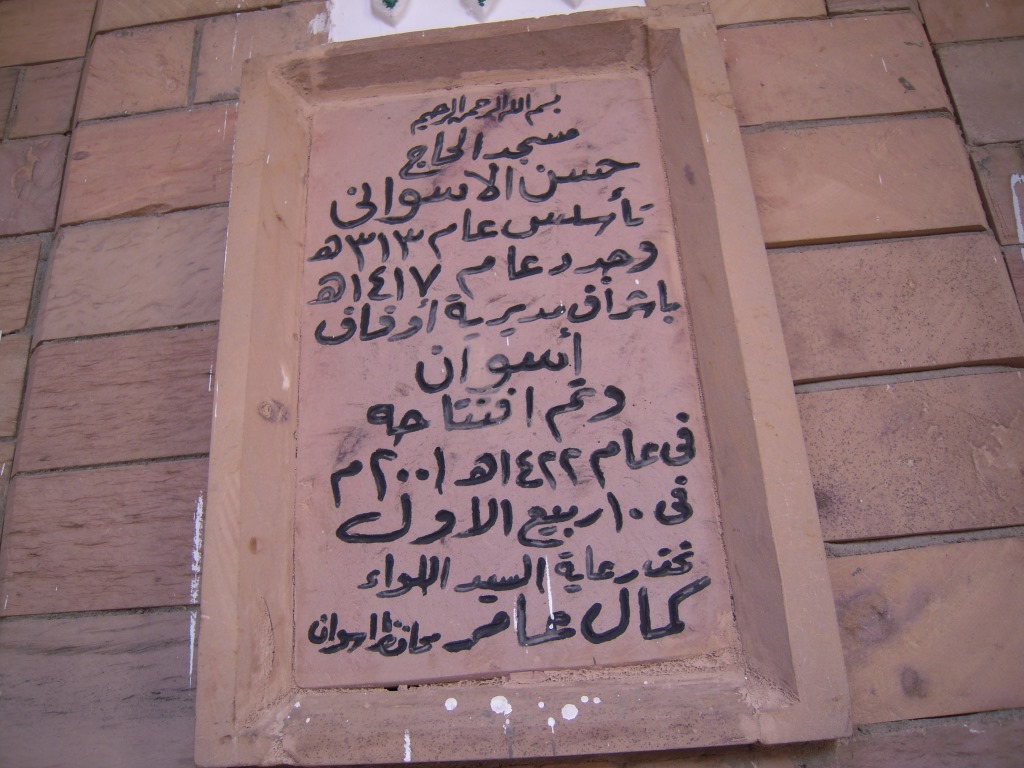 بسم الله الرحمن الرحيم
مسجد الحاج
حسن الاسوانى
تأسس عام ١٣١٣ه
وجدد عام ١٤١٧ه
باشراف مديرية أوقاف
أسوان
وتم افتتاحه
فى عام ١٤٢٢ه ٢٠٠١م
فى ١٠ ربيع الاول
تحت رعاية السيد اللواء
كمال عامر محافظ اسوان